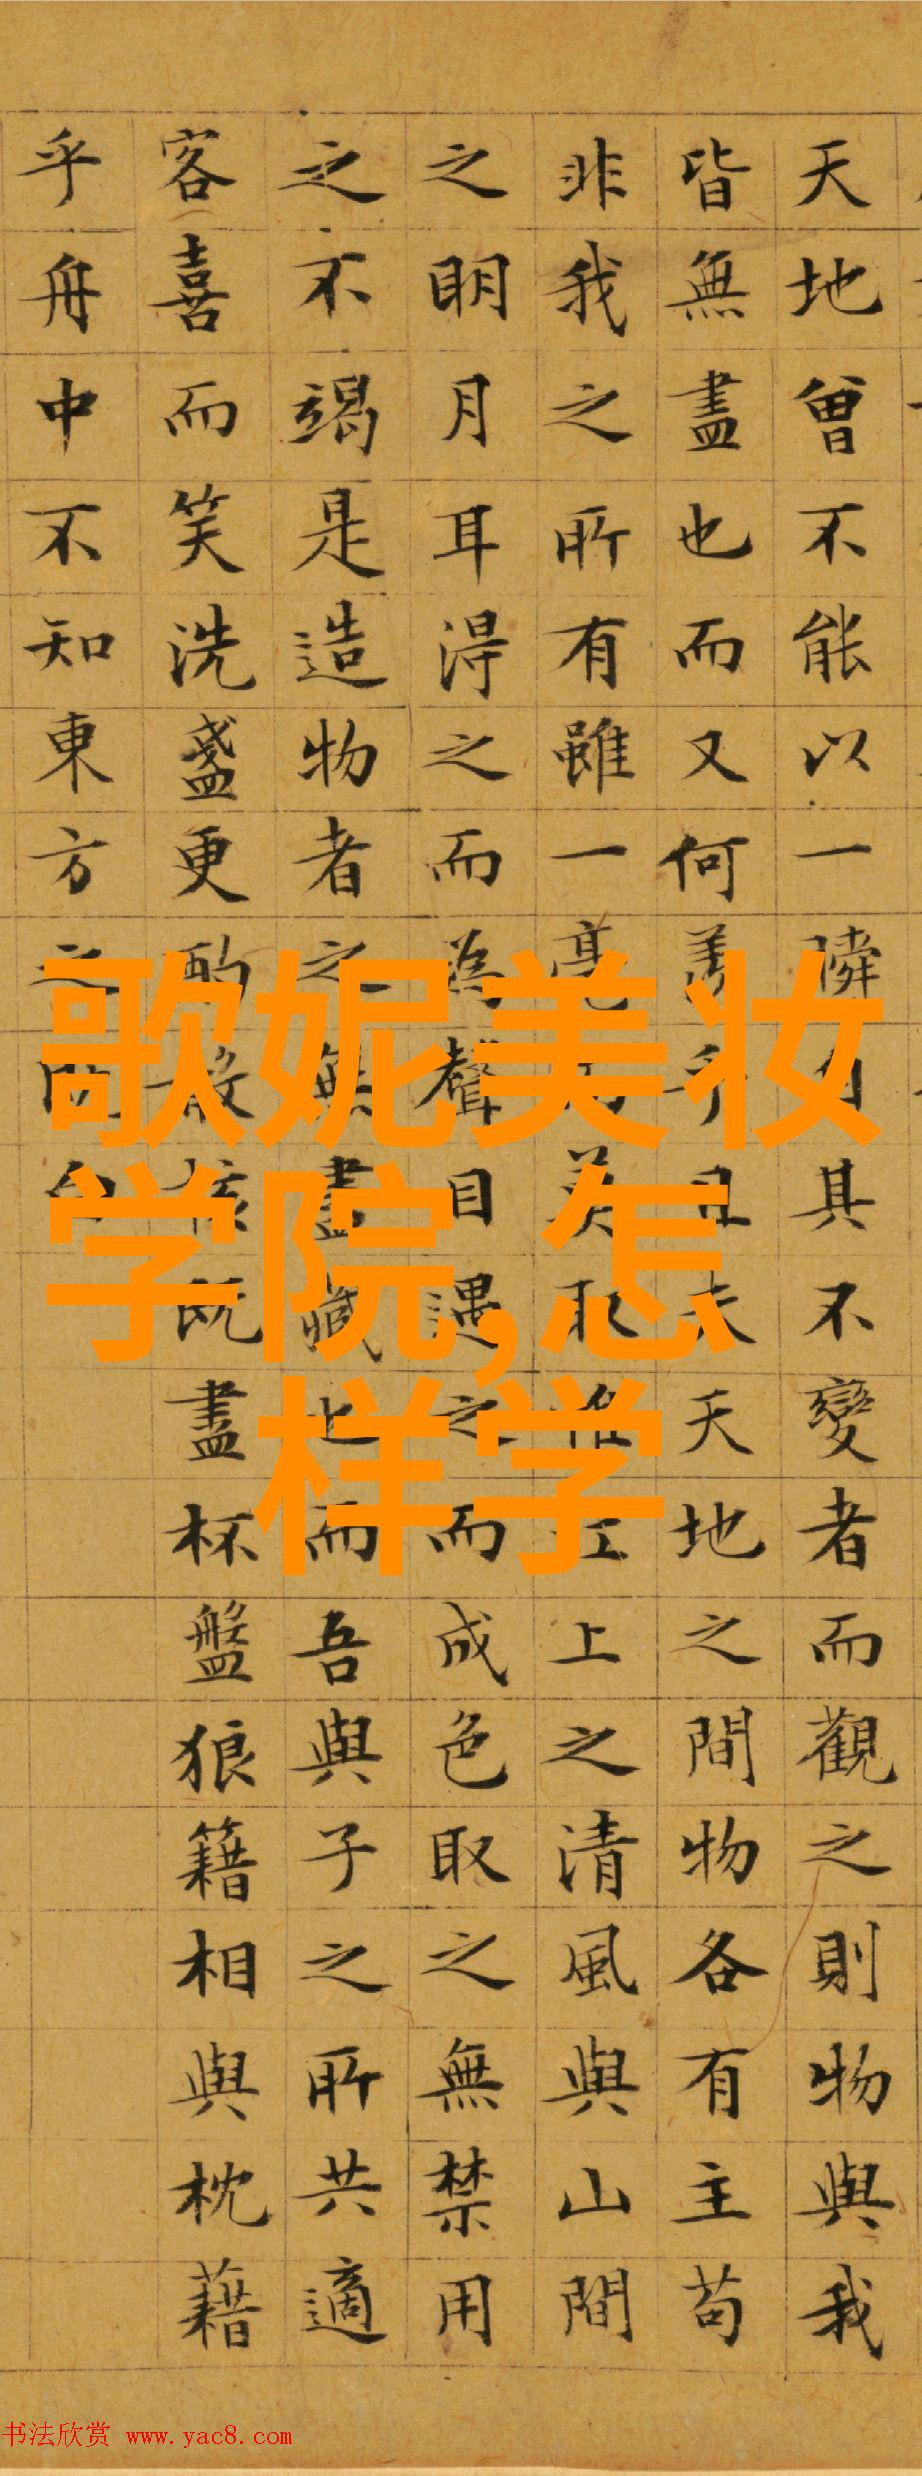 天地曾不能以一瞬自其不變者而觀之則物與我
皆無盡也而又何羨乎且夫天地之間物各有主苟
非我之所有雖一毫而莫取惟江上之清風與山間
之明月耳得之而為聲目遇之而成色取之無禁用
之不竭是造物者之無盡藏也而吾與子之所共適
客喜而笑洗盞更酌殽核既盡杯盤狼籍相與枕藉
乎舟中不知東方之既白
歌妮美妆
学院,怎
样学
书法欣赏 www.yac8.com